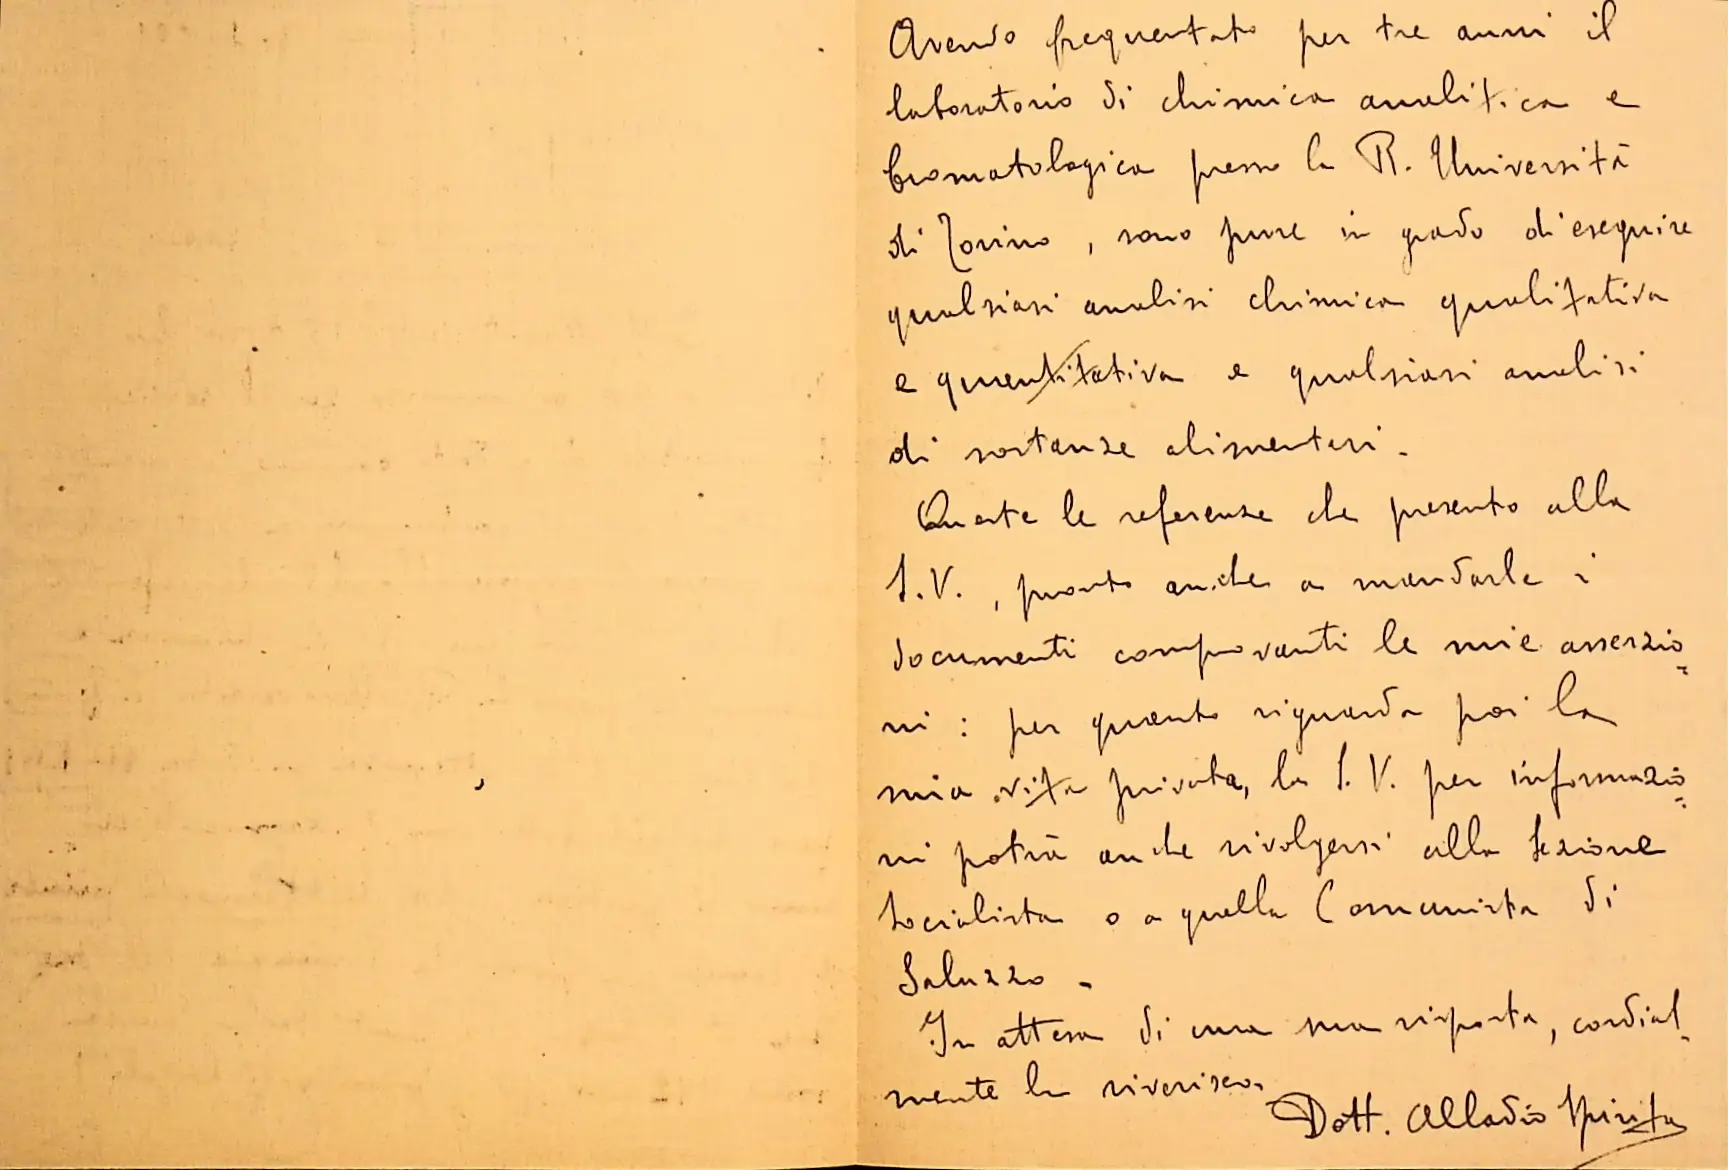 Avendo frequentato per tre anni il
laboratorio di chimica analitica e
bromatologica presso la R. Università
di Torino, sono pure in grado di eseguire
qualsiasi analisi chimica qualitativa
e quantitativa e qualsiasi analisi
di sostanze alimentari.
Queste le referenze che presento alla
S.V., pronto anche a mandarle i
documenti comprovanti le mie asserzio=
ni: per quanto riguarda poi la
mia vita privata, la S.V. per informazio=
ni potrà anche rivolgersi alla Sezione
Socialista o a quella Comunista di
Saluzzo.
In attesa di una sua risposta, cordial-
mente la riverisco.
Dott. Alladio Spirita